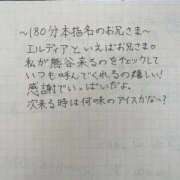 ～180分本指名のお兄さま～
エルディアといえばお兄さま。
私が熊谷来るのをチェックして
いつも呼んでくれるの嬉しい!
感謝でいっぱいだよ。
次来る時は何味のアイスかな～?